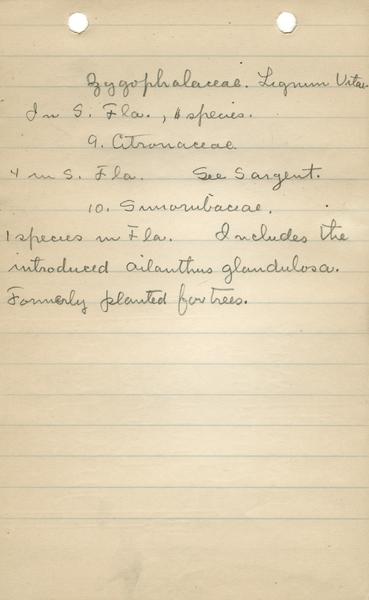 Zygophalaceae. Lignum Vitae.
In S. Fla., species.
9. Citronaceae
4 in S. Fla. See Sargent.
10. Simarubaceae.
1 species in Fla. Includes the
introduced ailanthus glandulosa.
Formerly planted for trees.